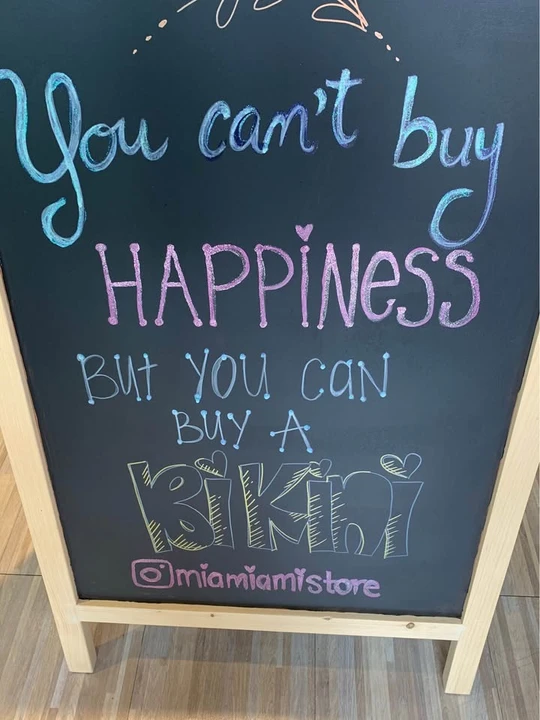 You can't buy
HAPPiNeSS
BUt YOU CaN
BUY A
BiKini
miamiamistore